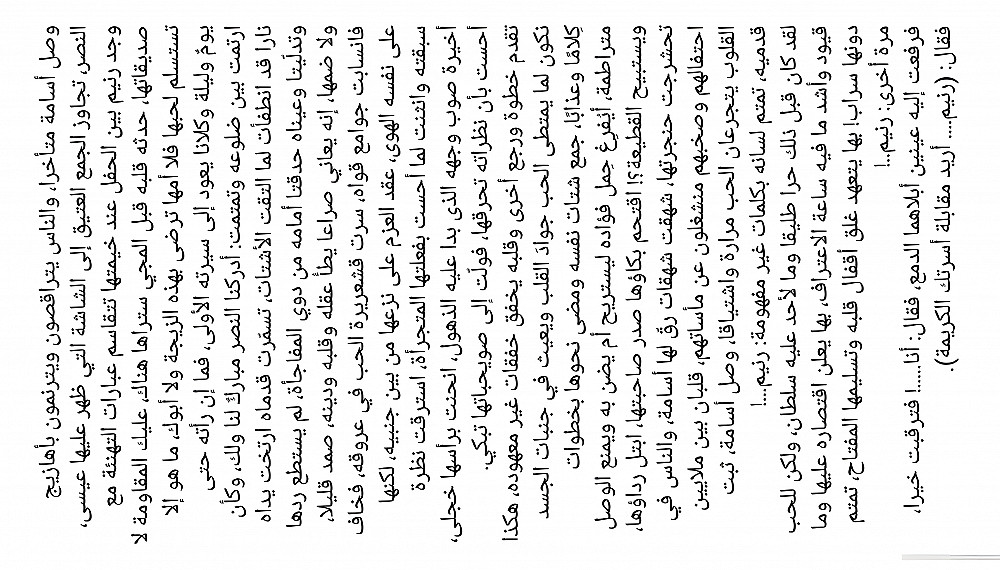 وصل أسامة متأخرا، والناس يتراقصون ويترنمون بأهازيج
النصر، تجاور الجمع العتيق إلى الشاشة التي ظهر عليها عيسى،
وجد رنيم بين الحفل عند خيمتها تتقاسم عبارات التهنئة مع
صديقاتها، حدثه قلبه قبل المجي ستراها هناك، عليك المقاومة لا
تستسلم لحبها فلا أمها ترضى بهذه الزيجة ولا أبوك، ما هو إلا
يومٌ وليلة وكلانا يعود إلى سيرته الأولى، فما إن رأته حتى
ارتمت بين ضلوعه وتمتمت: أدركنا النصر مباركٌ لنا ولك، وكأن
نارا قد انطفأت لما التقت الأشتات، تسمّرت قدماه ارتخت يداه
وتدلّيتا وعيناه حدقتا أمامه من دوي المفاجأة، لم يستطع ردها
ولا ضمها، إنه يعاني صراعا يطأ عقله وقلبه ودينه، صمد قليلا،
فانسابت جوامع قواه، سرت قشعريرة الحب في عروقه، فخاف
على نفسه الهوى، عقد العزم على نزعها من بين جنبيه، لكنها
سبقته وانثنت لما أحست بفعلتها المتجرأة، استرقت نظرة
أخيرة صوب وجهه الذي بدا عليه الذهول، انحنت برأسها خجلى،
أحست بأن نظراته تحرقها، فولّت إلى صويحباتها تبكي.
تقدم خطوة ورجع أخرى وقلبه يخفق خفقات غير معهوده، هكذا
نكون لما يمتطي الحب جوادَ القلب ويعيث في جنبات الجسد
كِلامًا وعذابًا، جمع شتات نفسه ومضى نحوها بخطوات
متراطمة، أيُفرِغ حِمل فؤاده ليستريح أم يضن به ويمنع الوصل
ويستبيح القطيعة؟! اقتحم بكاؤها صدر صاحبتها، ابتل رداؤها،
تحشرجت حنجرتها، شهقت شهقات رقّ لها أسامة، والناس في
احتفالهم وصخبهم منشغلون عن مأساتهم، قلبان بين ملايين
القلوب يتجرعان الحب مرارة واشتياقا، وصل أسامة، ثبت
قدميه، تمتم لسانه بكلمات غير مفهومة: رنيم...!
لقد كان قبل ذلك حرا طليقا وما لأحد عليه سلطان، ولكن للحب
قيود وأشد ما فيه ساعة الاعتراف، بها يعلن اقتصاره عليها وما
دونها سراب، بها يتعهد غلق أقفال قلبه وتسليمها المفتاح، تمتم
مرة أخرى: رنيم...!
فرفعت إليه عينين أبلاهما الدمع، فقال: أنا.....، فترقبت خيرا،
فقال: (رنيم....أريد مقابلة أسرتك الكريمة).